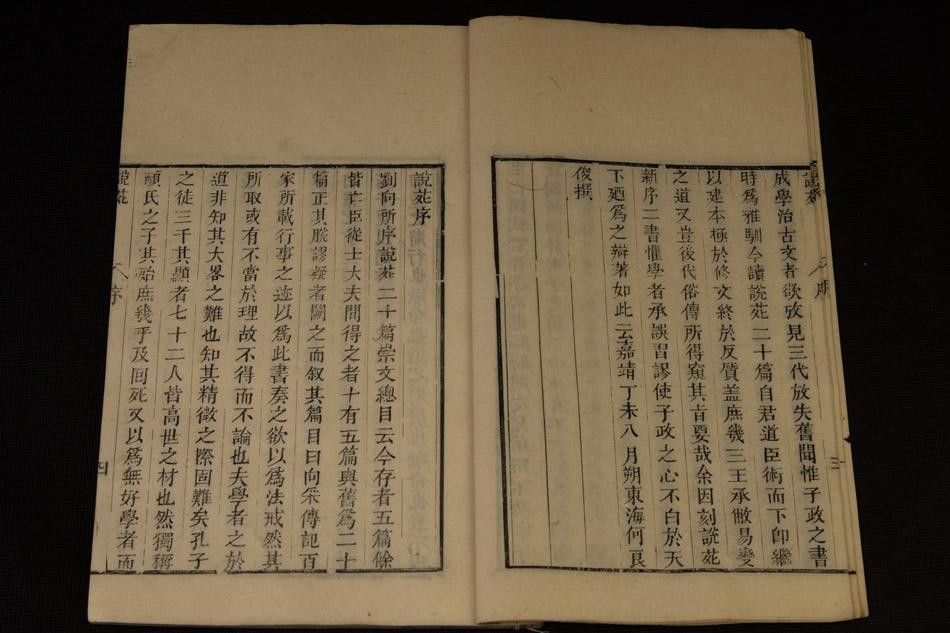 說苑
序
三
成學治古文者欲攷見三代放失舊聞惟子政之書
時爲雅馴今讀說苑二十篇自君道臣術而下卽繼
以建本極於修文終於反質盖庶幾三王承敝易變
之道又豈後代俗傳所得窺其肯要哉余因刻說苑
新序二書懼學者承誤習謬使子政之心不白於天
下廼爲之辯著如此云嘉靖丁未八月朔東海何良
俊撰
說苑序
劉向所序說苑二十篇崇文總目云今存者五篇餘
皆亡臣從士大夫間得之者十有五篇與舊爲二十
篇正其脫謬疑者闕之而叙其篇目曰向采傳記百
家所載行事之迹以爲此書奏之欲以爲法戒然其
所取或有不當於理故不得而不論也夫學者之於
道非知其大畧之難也知其精微之際固難矣孔子
之徒三千其顯者七十二人皆高世之材也然獨稱
顔氏之子其始庶幾乎及回死又以爲無好學者而
說苑
序
四